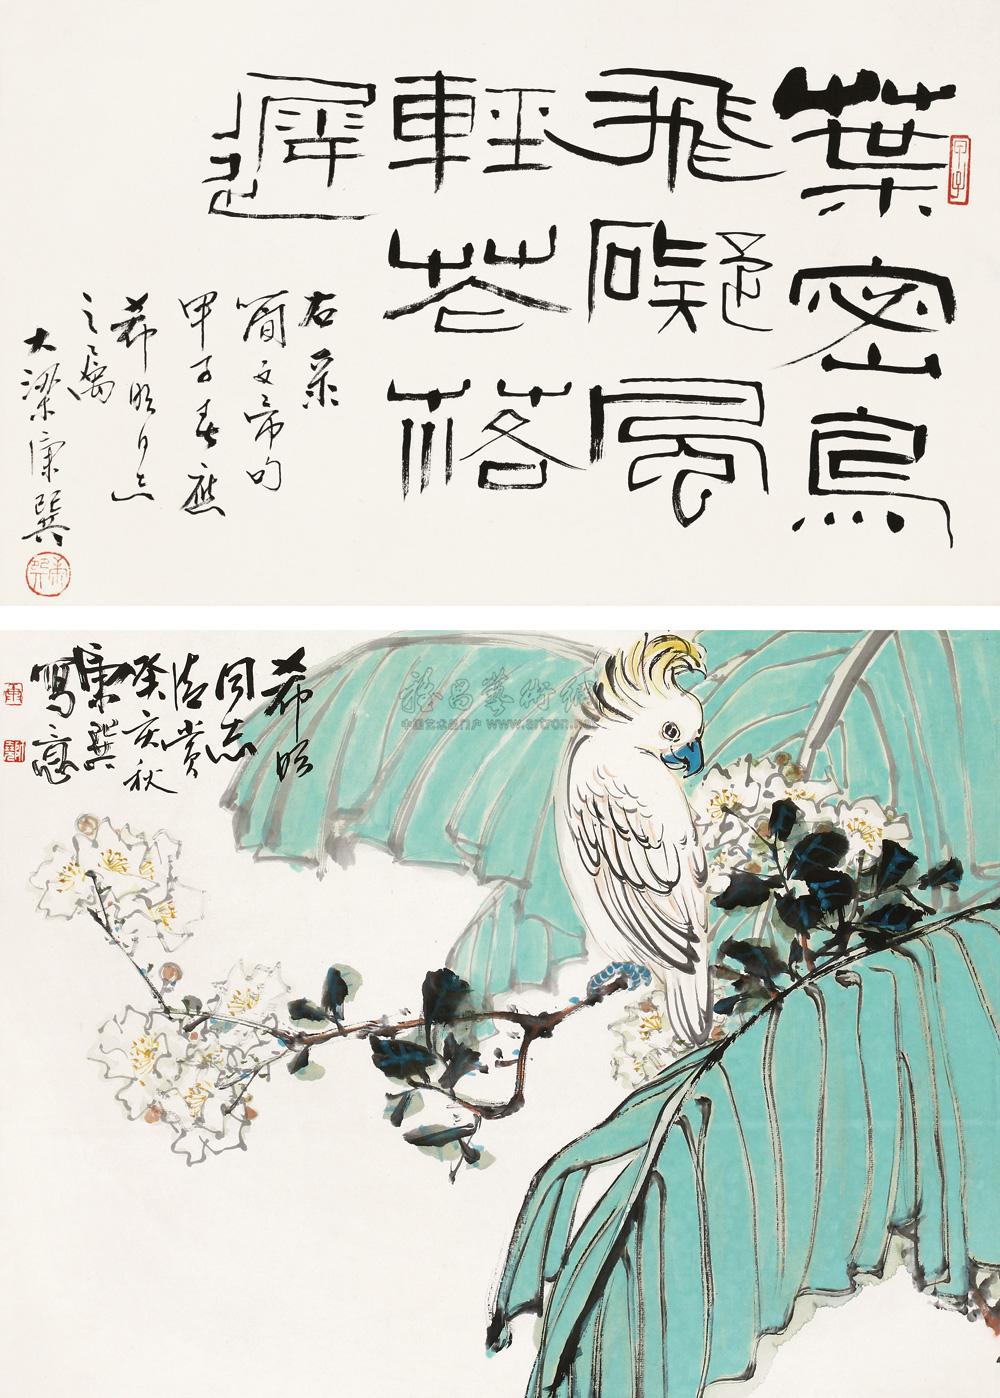 葉密鳥
飛礙風
輕花落
遲
右梁
簡文帝句
甲子春應
希明同志
之屬
大梁康巽
希明
同志
清賞
癸亥秋
康巽
寫意
中国艺术品门户 www.artron.net